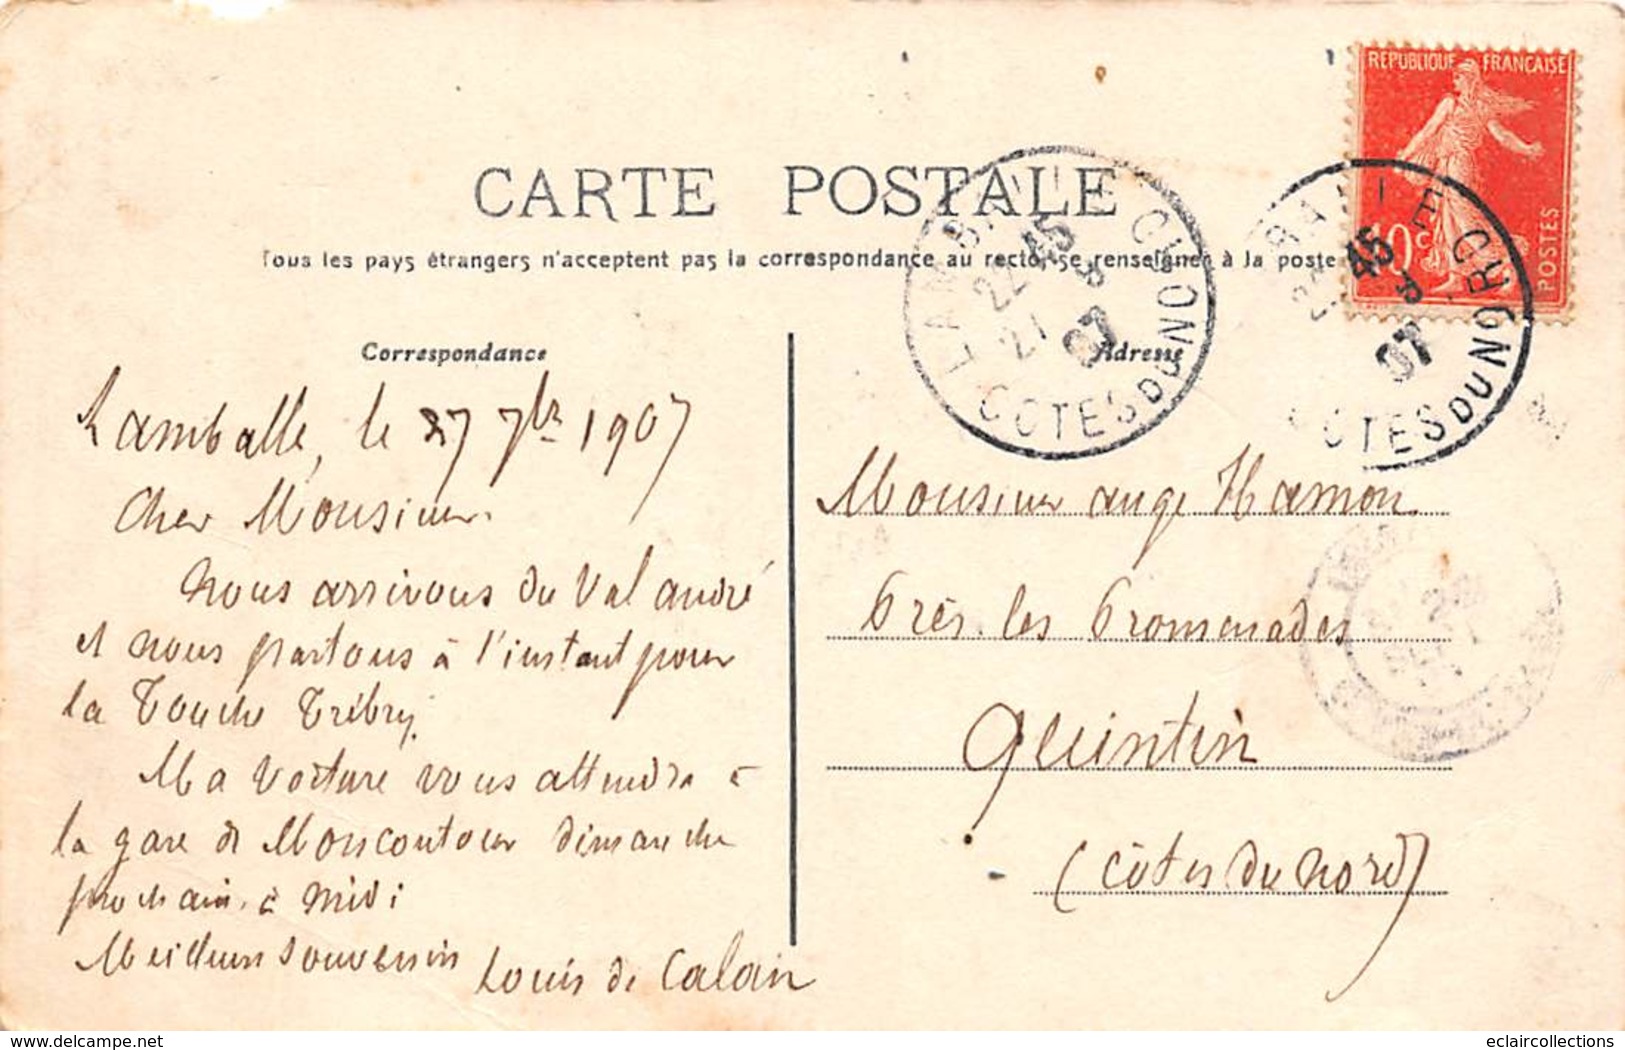 CARTE POSTALE
Tous les pays étrangers n'acceptent pas la correspondance au recto, se renseigner à la poste
REPUBLIQUE FRANÇAISE
10c
POSTES
LAMBALLE
22 45
21 8
07
COTES DU NORD
45
8
07
COTES DU NORD
Correspondance
Lamballe, le 27 7bre 1907
Cher Monsieur.
Nous arrivons du Val andré
et nous partons à l'instant pour
la Touche Trébry.
Ma voiture vous attendra à
la gare de Moncontour dimanche
prochain, à midi
Meilleurs souvenirs
Louis de Calan
Adresse
Monsieur ange Hamon
Près les Promenades
Quintin
(Côtes du Nord)
Delcampe.net
eclaircollections